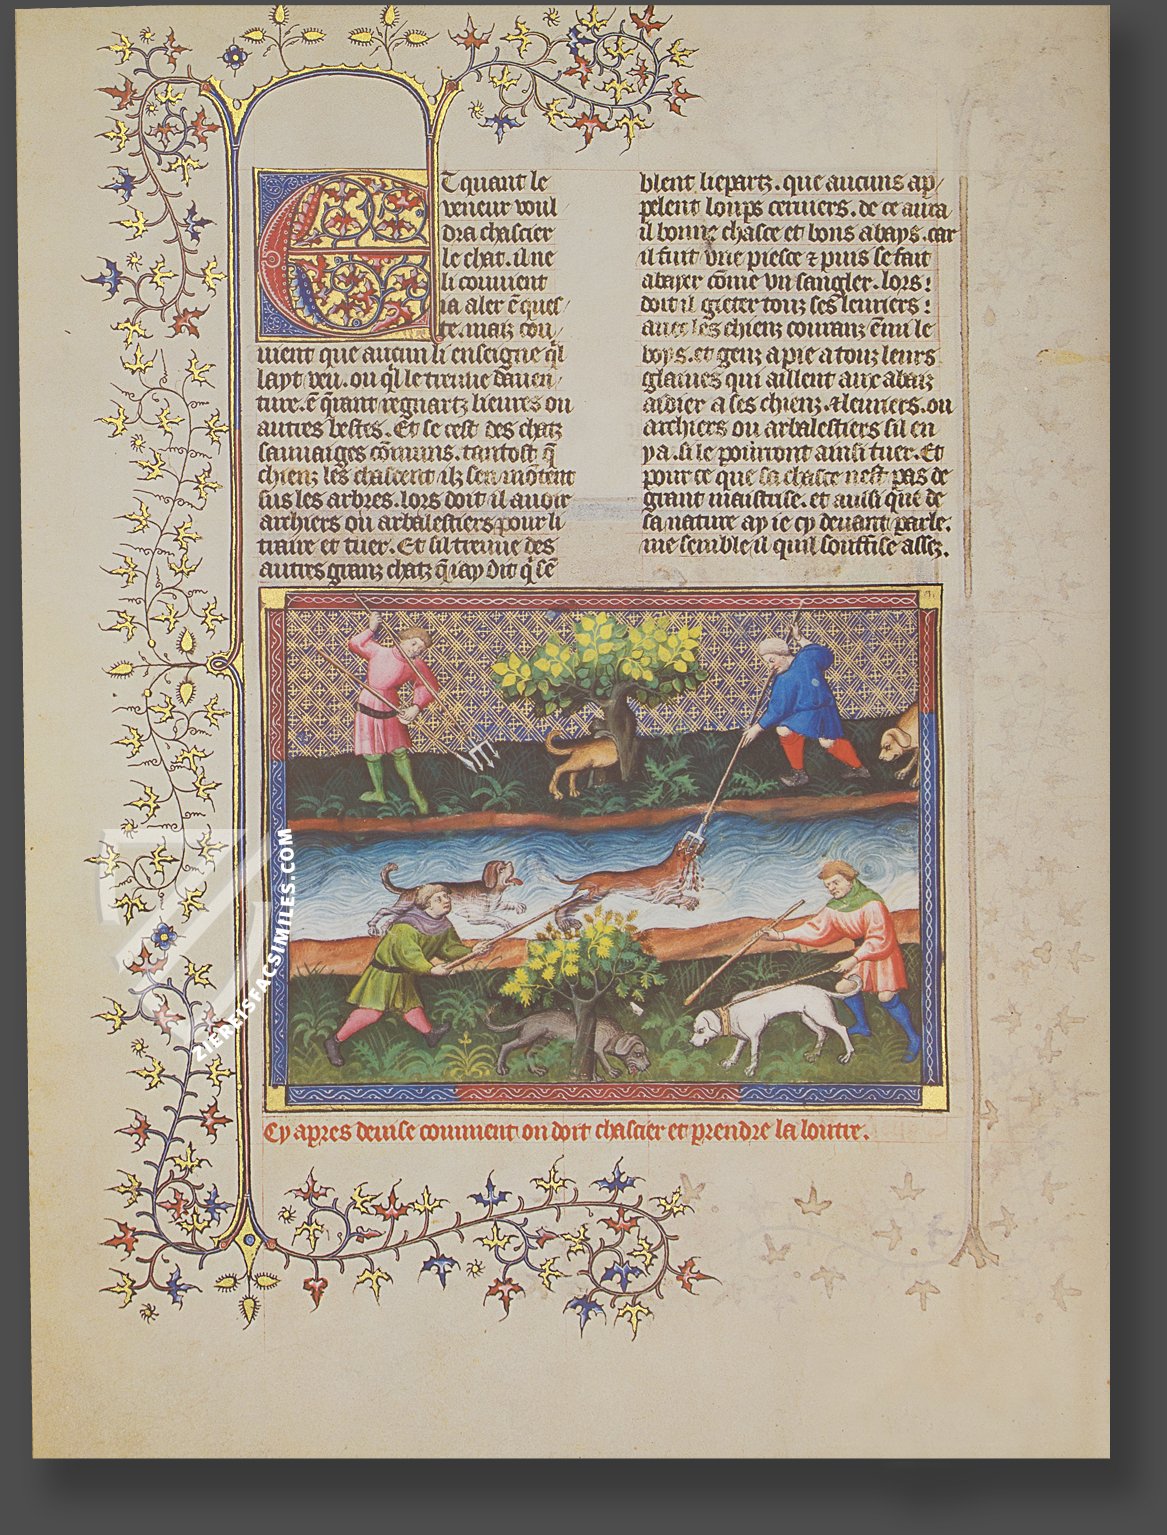 Et quant le
veneur voul
dra chascier
le chat. il ne
li couuient
ia aler ē ques
te. maiz cou
uient que aucun li enseigne q̄l
layt veu. ou q̄l le treuue dauen
ture. ē q̄rant regnartz lieures ou
autres bestes. Et se cest des chatz
sauuaiges cōmuns. tantost q̄
chienz les chascent ilz sen mōtent
sus les arbres. lors doit il auoir
archiers ou arbalestiers pour li
traire et tuer. Et sil treuue des
autres granz chatz q̄ iay dit q̄ lē
blent liepartz. que aucuns ap
pelent loups ceruiers. de ce aura
il bonne chasce et bons abays. car
il fuit vne piesce ⁊ puis se fait
abayer cōme vn sangler. lors
doit il gieter touz ses leuriers
auec les chienz couranz ēmi le
boys. et genz a pie a touz leurs
glaiues qui aillent aux abaiz
aidier a ses chienz. ⁊ leuriers. ou
archiers ou arbalestiers sil en
ya. si le pourront ainsi tuer. Et
pour ce que sa chasce nest pas de
grant maistrise. et aussi que de
sa nature ay ie cy deuant parle.
me semble il quil souffise assez.
Cy apres deuise comment on doit chascier et prendre la loutre.
ZIEREISFACSIMILES.COM